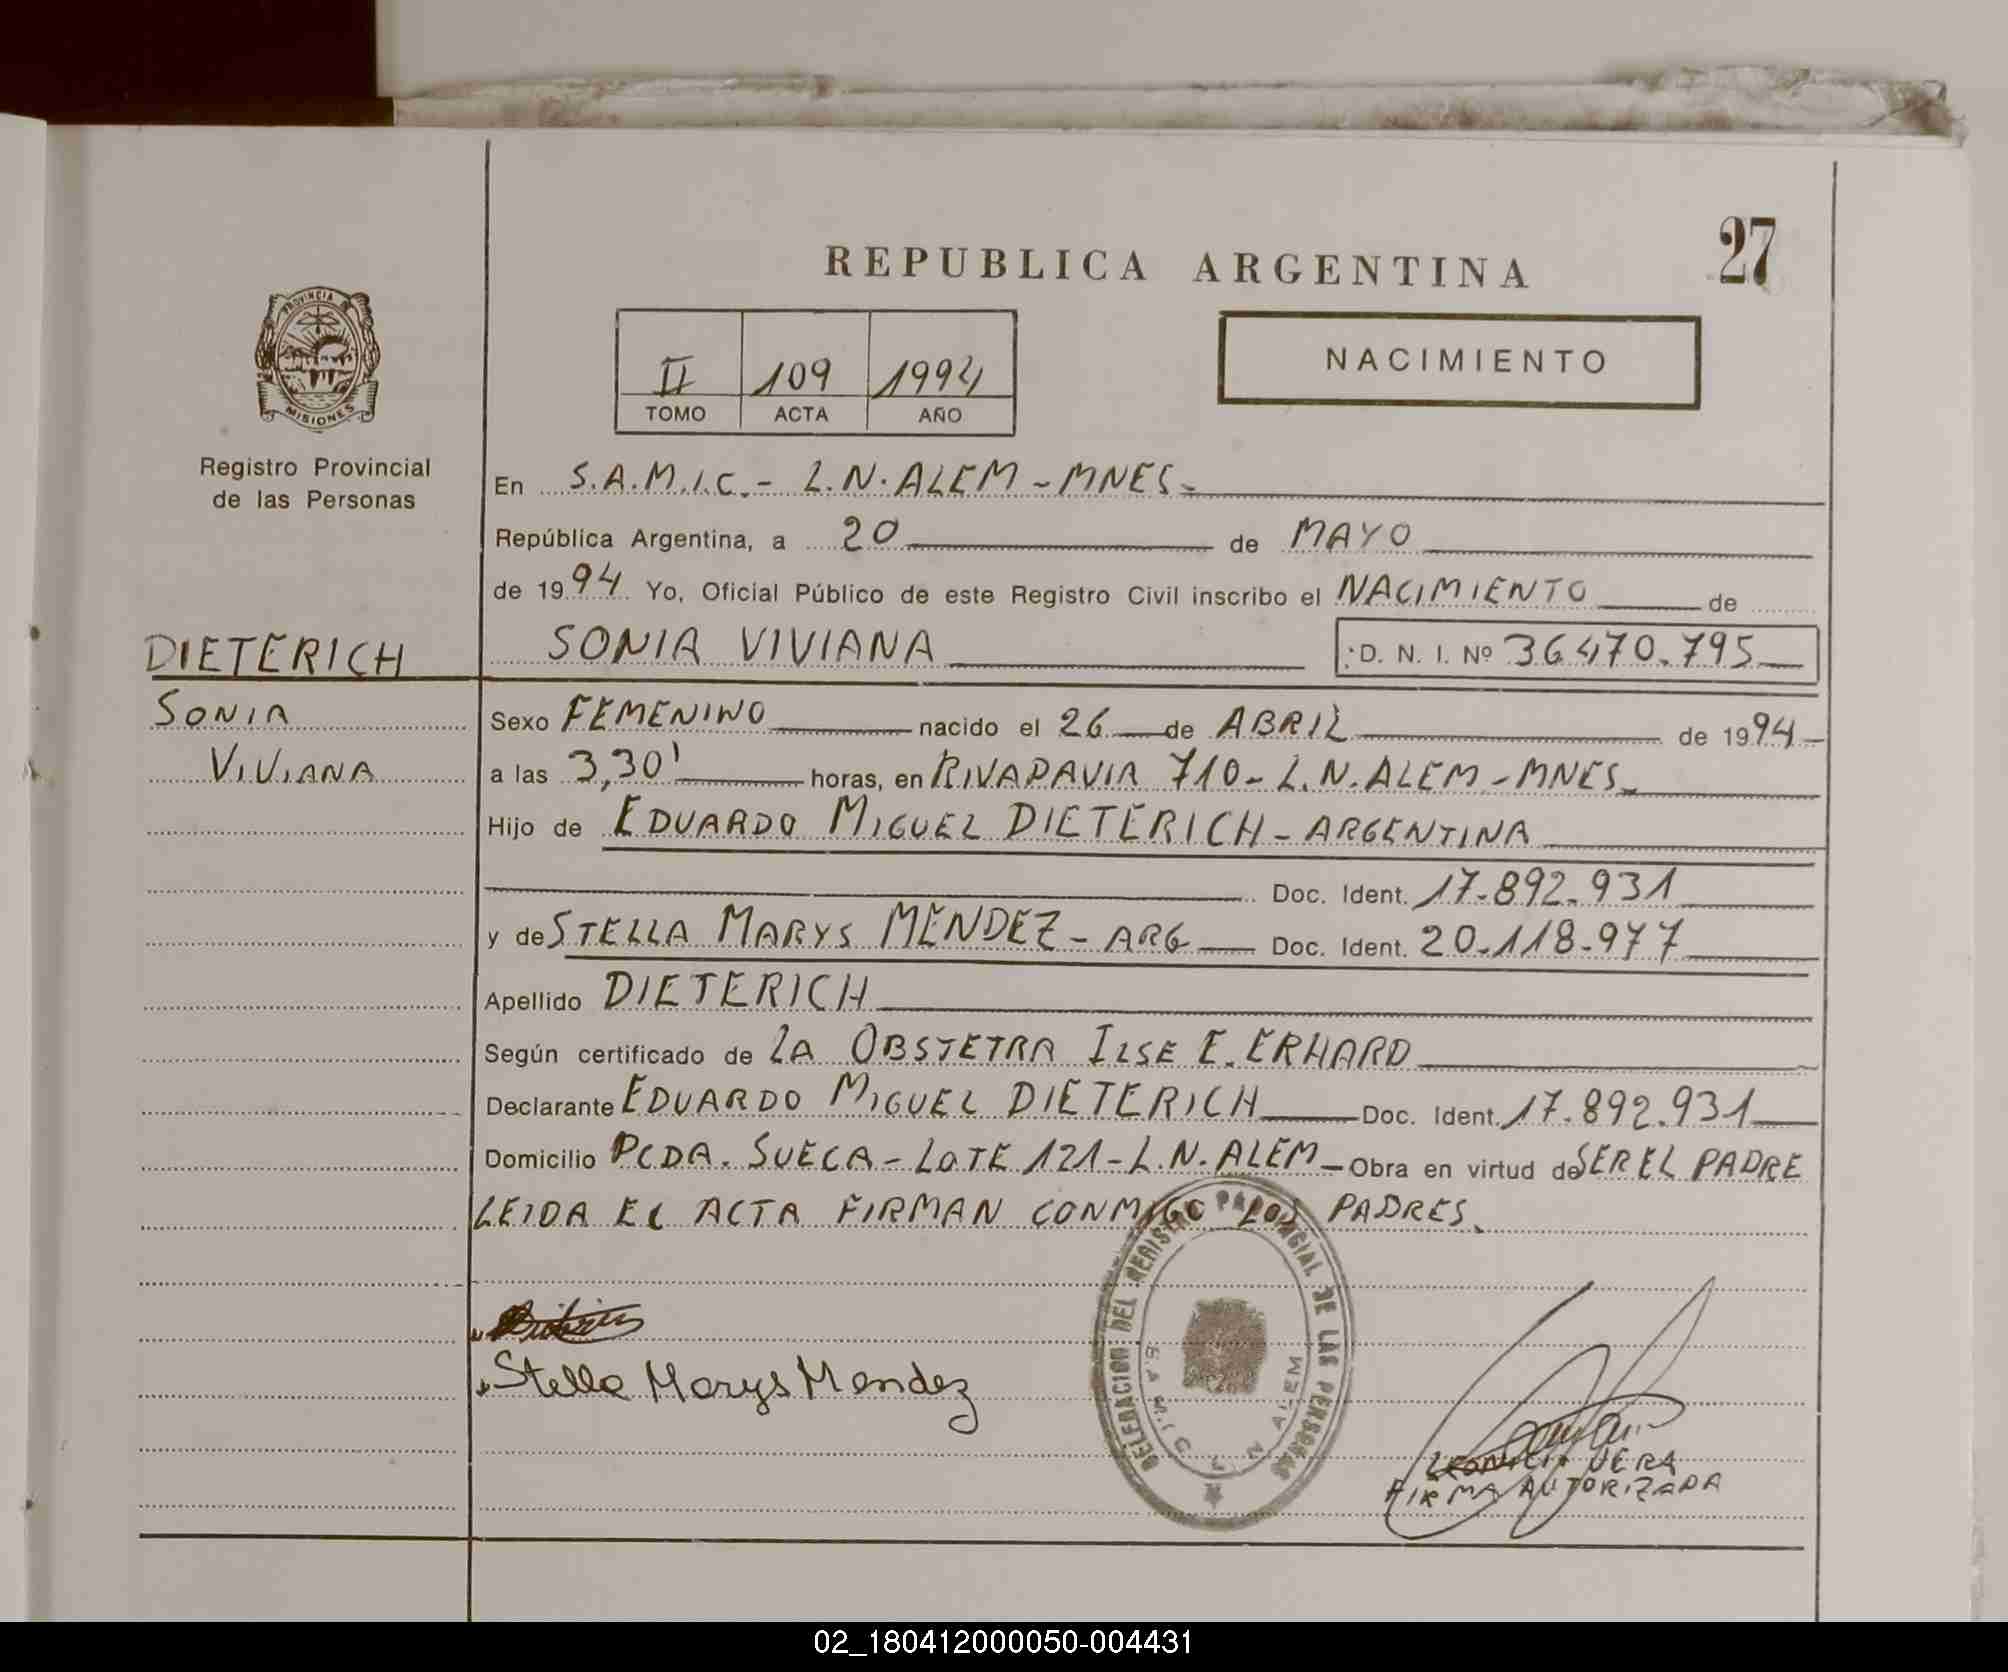 27
REPUBLICA ARGENTINA
PROVINCIA DE
MISIONES
Registro Provincial
de las Personas
II 109 1994
TOMO ACTA AÑO
NACIMIENTO
En S.A.M.I.C.- L.N. ALEM - MNES-
República Argentina, a 20 de MAYO
de 1994 Yo, Oficial Público de este Registro Civil inscribo el NACIMIENTO de
DIETERICH SONIA VIVIANA D. N. I. Nº 36470.795
SONIA Sexo FEMENINO nacido el 26 de ABRIL de 1994
VIVIANA a las 3,30' horas, en RIVADAVIA 710- L.N. ALEM - MNES-
Hijo de EDUARDO MIGUEL DIETERICH - ARGENTINA
Doc. Ident. 17.892.931
y de STELLA MARYS MENDEZ - ARG Doc. Ident. 20.118.977
Apellido DIETERICH
Según certificado de LA OBSTETRA ILSE E. ERHARD
Declarante EDUARDO MIGUEL DIETERICH Doc. Ident. 17.892.931
Domicilio PCDA. SUECA - LOTE 121 - L.N. ALEM - Obra en virtud de SER EL PADRE
LEIDA EL ACTA FIRMAN CONMIGO LOS PADRES.
Stella Marys Mendez
DELEGACION DEL REGISTRO PROVINCIAL DE LAS PERSONAS
S.A.M.I.C. L N ALEM
VERA
FIRMA AUTORIZADA
02_180412000050-004431